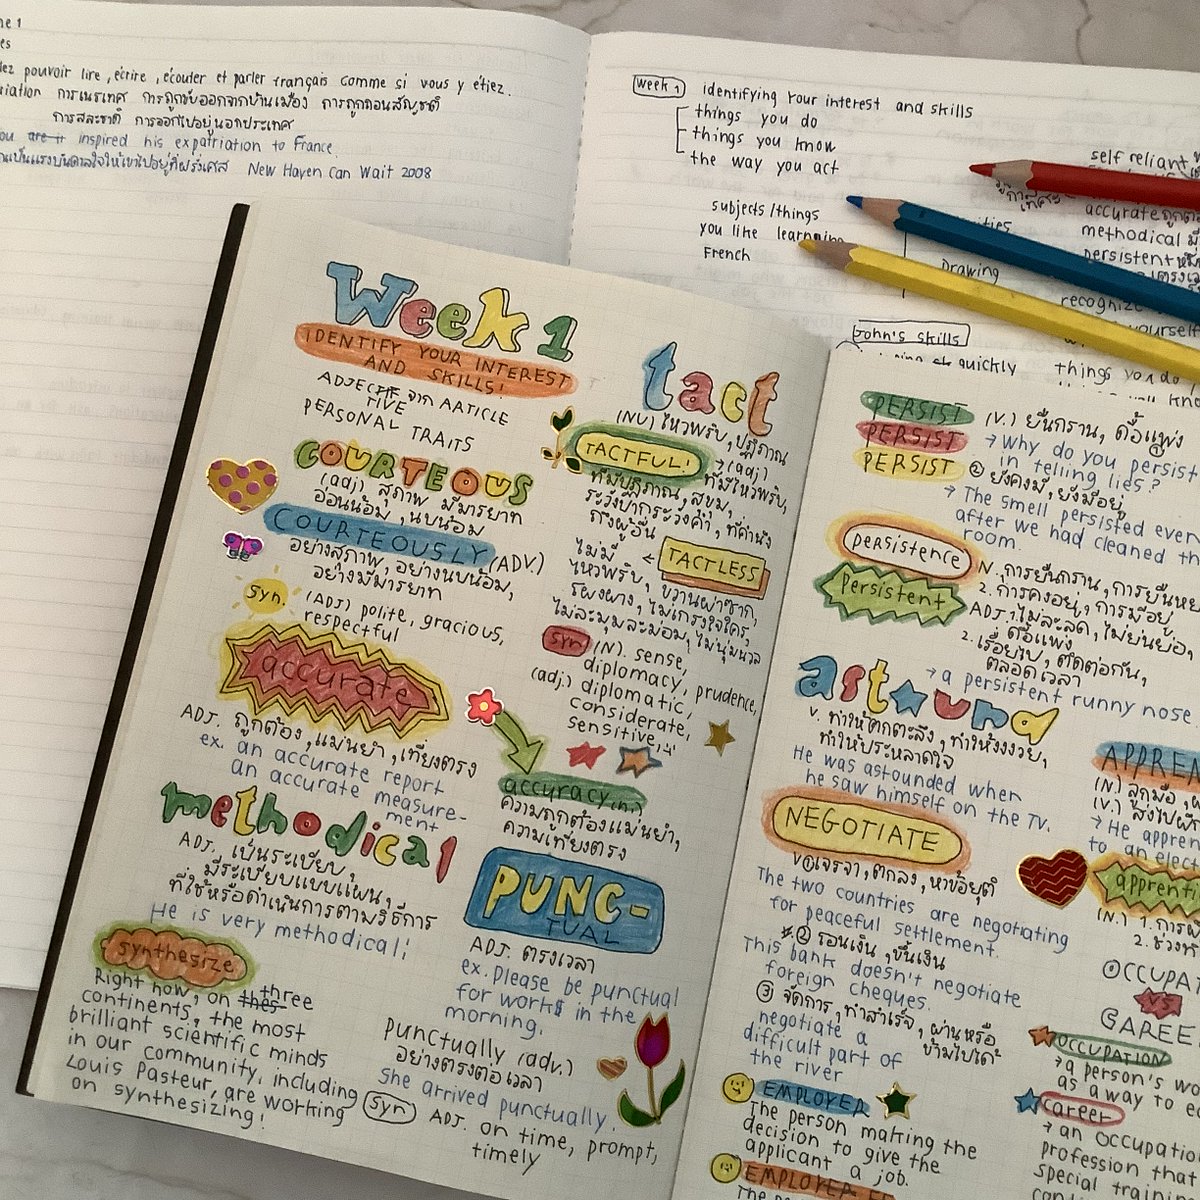 ne 1
es
lez pouvoir lire, écrire, écouter et parler français comme si vous y étiez.
riation การเนรเทศ การถูกขับออกจากบ้านเมือง การถูกถอนสัญชาติ
การสละชาติ การออกไปอยู่นอกประเทศ
ou are it inspired his expatriation to France.
New Haven Can Wait 2008
Week 1 identifying your interest and skills
things you do
things you know
the way you act
subjects/things
you like learning
French
Drawing
John's skills
quickly
self reliant
accurate
methodical
persistent
recognize
yourself
things you do
Week 1
IDENTIFY YOUR INTEREST
AND SKILLS!
ADJECTIVE จาก ARTICLE
PERSONAL TRAITS
COURTEOUS
(adj) สุภาพ มีมารยาท
อ่อนน้อม, นบน้อม
COURTEOUSLY (ADV.)
อย่างสุภาพ, อย่างนบน้อม,
อย่างมีมารยาท
syn. (ADJ) polite, gracious,
respectful
accurate
ADJ. ถูกต้อง, แม่นยำ, เที่ยงตรง
ex. an accurate report
an accurate measure-
ment
methodical
ADJ. เป็นระเบียบ,
มีระเบียบแบบแผน,
ที่ใช้หรือดำเนินการตามวิธีการ
He is very methodical!
synthesize
Right now, on thes three
continents, the most
brilliant scientific minds
in our community, including
Louis Pasteur, are working
on synthesizing!
tact
(NU) ไหวพริบ, ปฏิภาณ
TACTFUL! → (adj)
ที่มีไหวพริบ,
ที่มีปฏิภาณ, สุขุม,
ระวังปากระวังคำ, ที่คำนึง
ถึงผู้อื่น
TACTLESS
ไม่มี
ไหวพริบ, ขวานผ่าซาก,
โผงผาง, ไม่เกรงใจใคร,
ไม่ละมุนละม่อม, ไม่นุ่มนวล
syn (N). sense,
diplomacy, prudence,
(adj.) diplomatic,
considerate,
sensitive
accuracy (n.)
ความถูกต้องแม่นยำ,
ความเที่ยงตรง
PUNC-
TUAL
ADJ. ตรงเวลา
ex. please be punctual
for works in the
morning.
punctually (adv.)
อย่างตรงต่อเวลา
She arrived punctually.
syn ADJ. on time, prompt,
timely
PERSIST (V.) ยืนกราน, ดื้อแพ่ง
PERSIST → Why do you persist
in telling lies?
PERSIST ② ยังคงมี, ยังมีอยู่
→ The smell persisted even
after we had cleaned th
room.
persistence N. การยืนกราน, การยืนหย
2. การคงอยู่, การมีอยู่
Persistent ADJ. 1. ไม่ละลด, ไม่ย่นย่อ,
ดื้อแพ่ง
2. เรื่อยไป, ติดต่อกัน,
ตลอดเวลา
→ a persistent runny nose
astound
v. ทำให้ตกตะลึง, ทำให้งงงวย,
ทำให้ประหลาดใจ
He was astounded when
he saw himself on the TV.
NEGOTIATE
v ① เจรจา, ตกลง, หาข้อยุติ
The two countries are negotiating
for peaceful settlement.
② โอนเงิน, ขึ้นเงิน
This bank doesn't negotiate
foreign cheques.
③ จัดการ, ทำสำเร็จ, ผ่านหรือ
ข้ามไปได้
negotiate a
difficult part of
the river
EMPLOYER
The person making the
decision to give the
applicant a job.
EMPLOYEE
APPREN
(N) ลูกมือ,
(V.) ส่งไปฝึก
→ He appren
to an elec
apprenti
(N.) 1. การฝ
2. ช่วง
OCCUPAT
VS
CAREE
OCCUPATION
→ a person's wo
as a way to e
career
→ an occupation
profession that
special train